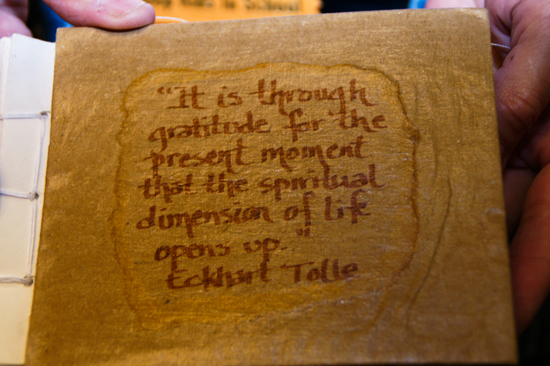 "It is through
gratitude for the
present moment
that the spiritual
dimension of life
opens up."
Eckhart Tolle